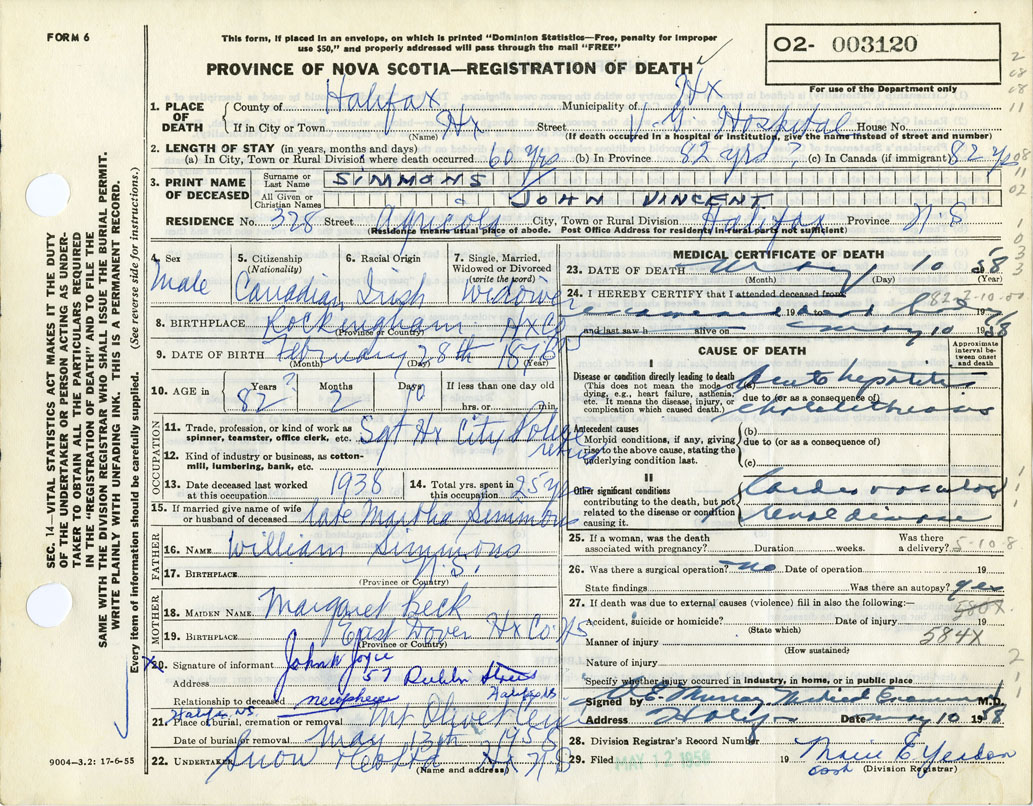 FORM 6
This form, if placed in an envelope, on which is printed "Dominion Statistics—Free, penalty for improper
use $50," and properly addressed will pass through the mail "FREE"
02- 003120
For use of the Department only
PROVINCE OF NOVA SCOTIA—REGISTRATION OF DEATH
1. PLACE OF DEATH County of Halifax Municipality of Hx
If in City or Town Hx Street V. G. Hospital House No.
(Name) (If death occurred in a hospital or institution, give the name instead of street and number)
2. LENGTH OF STAY (in years, months and days)
(a) In City, Town or Rural Division where death occurred 60 yrs (b) In Province 82 yrs ? (c) In Canada (if immigrant) 82 yrs
3. PRINT NAME OF DECEASED Surname or Last Name SIMMONS
All Given or Christian Names JOHN VINCENT
RESIDENCE No. 328 Street Agricola City, Town or Rural Division Halifax Province N.S
(Residence means usual place of abode. Post Office Address for residents in rural parts not sufficient)
4. Sex Male
5. Citizenship (Nationality) Canadian
6. Racial Origin Irish
7. Single, Married, Widowed or Divorced (write the word) Widower
8. BIRTHPLACE Rockingham Hx Co NS
(Province or Country)
9. DATE OF BIRTH February 28th 1876
(Month) (Day) (Year)
10. AGE in Years 82 ? Months 2 Days 10 If less than one day old hrs. or min.
OCCUPATION
11. Trade, profession, or kind of work as spinner, teamster, office clerk, etc. Sgt Hx City Police
12. Kind of industry or business, as cotton-mill, lumbering, bank, etc.
13. Date deceased last worked at this occupation 1938
14. Total yrs. spent in this occupation 25 yrs
15. If married give name of wife or husband of deceased late Martha Simmons
FATHER
16. NAME William Simmons
17. BIRTHPLACE N.S.
(Province or Country)
MOTHER
18. MAIDEN NAME Margaret Beck
19. BIRTHPLACE East Dover Hx Co. NS
(Province or Country)
20. Signature of informant John W Joyce
Address 57 Dublin Street Halifax NS
Relationship to deceased nephew
21. Place of burial, cremation or removal Halifax NS Mt Olivet Cem
Date of burial or removal May 13th 1958
22. UNDERTAKER Snow Hx NS
(Name and address)
9004—3.2: 17-6-55
MEDICAL CERTIFICATE OF DEATH
23. DATE OF DEATH May 10 58
(Month) (Day) (Year)
24. I HEREBY CERTIFY that I attended deceased from
examined dead body 19
and last saw h alive on May 10 1958
CAUSE OF DEATH
Approximate interval between onset and death
I
Disease or condition directly leading to death
(This does not mean the mode of dying, e.g., heart failure, asthenia, etc. It means the disease, injury, or complication which caused death.)
(a) Acute hepatitis
due to (or as a consequence of) cholelithiasis
Antecedent causes
Morbid conditions, if any, giving rise to the above cause, stating the underlying condition last.
(b)
due to (or as a consequence of)
(c)
II
Other significant conditions
contributing to the death, but not related to the disease or condition causing it.
Cardio vascular
renal disease
25. If a woman, was the death associated with pregnancy? Duration weeks. Was there a delivery? 5-10-8
26. Was there a surgical operation? no Date of operation 19
State findings Was there an autopsy? yes
27. If death was due to external causes (violence) fill in also the following:—
580X
Accident, suicide or homicide? Date of injury 19
(State which)
584X
Manner of injury
(How sustained)
Nature of injury
Specify whether injury occurred in industry, in home, or in public place
Signed by E. Murray Medical Examiner M.D.
Address Halifax Date May 10 1958
28. Division Registrar's Record Number
29. Filed MAY 12 1958 19
(Division Registrar)
SEC. 14—VITAL STATISTICS ACT MAKES IT THE DUTY
OF THE UNDERTAKER OR PERSON ACTING AS UNDER-
TAKER TO OBTAIN ALL THE PARTICULARS REQUIRED
IN THE "REGISTRATION OF DEATH" AND TO FILE THE
SAME WITH THE DIVISION REGISTRAR WHO SHALL ISSUE THE BURIAL PERMIT.
WRITE PLAINLY WITH UNFADING INK. THIS IS A PERMANENT RECORD.
Every item of information should be carefully supplied. (See reverse side for instructions.)